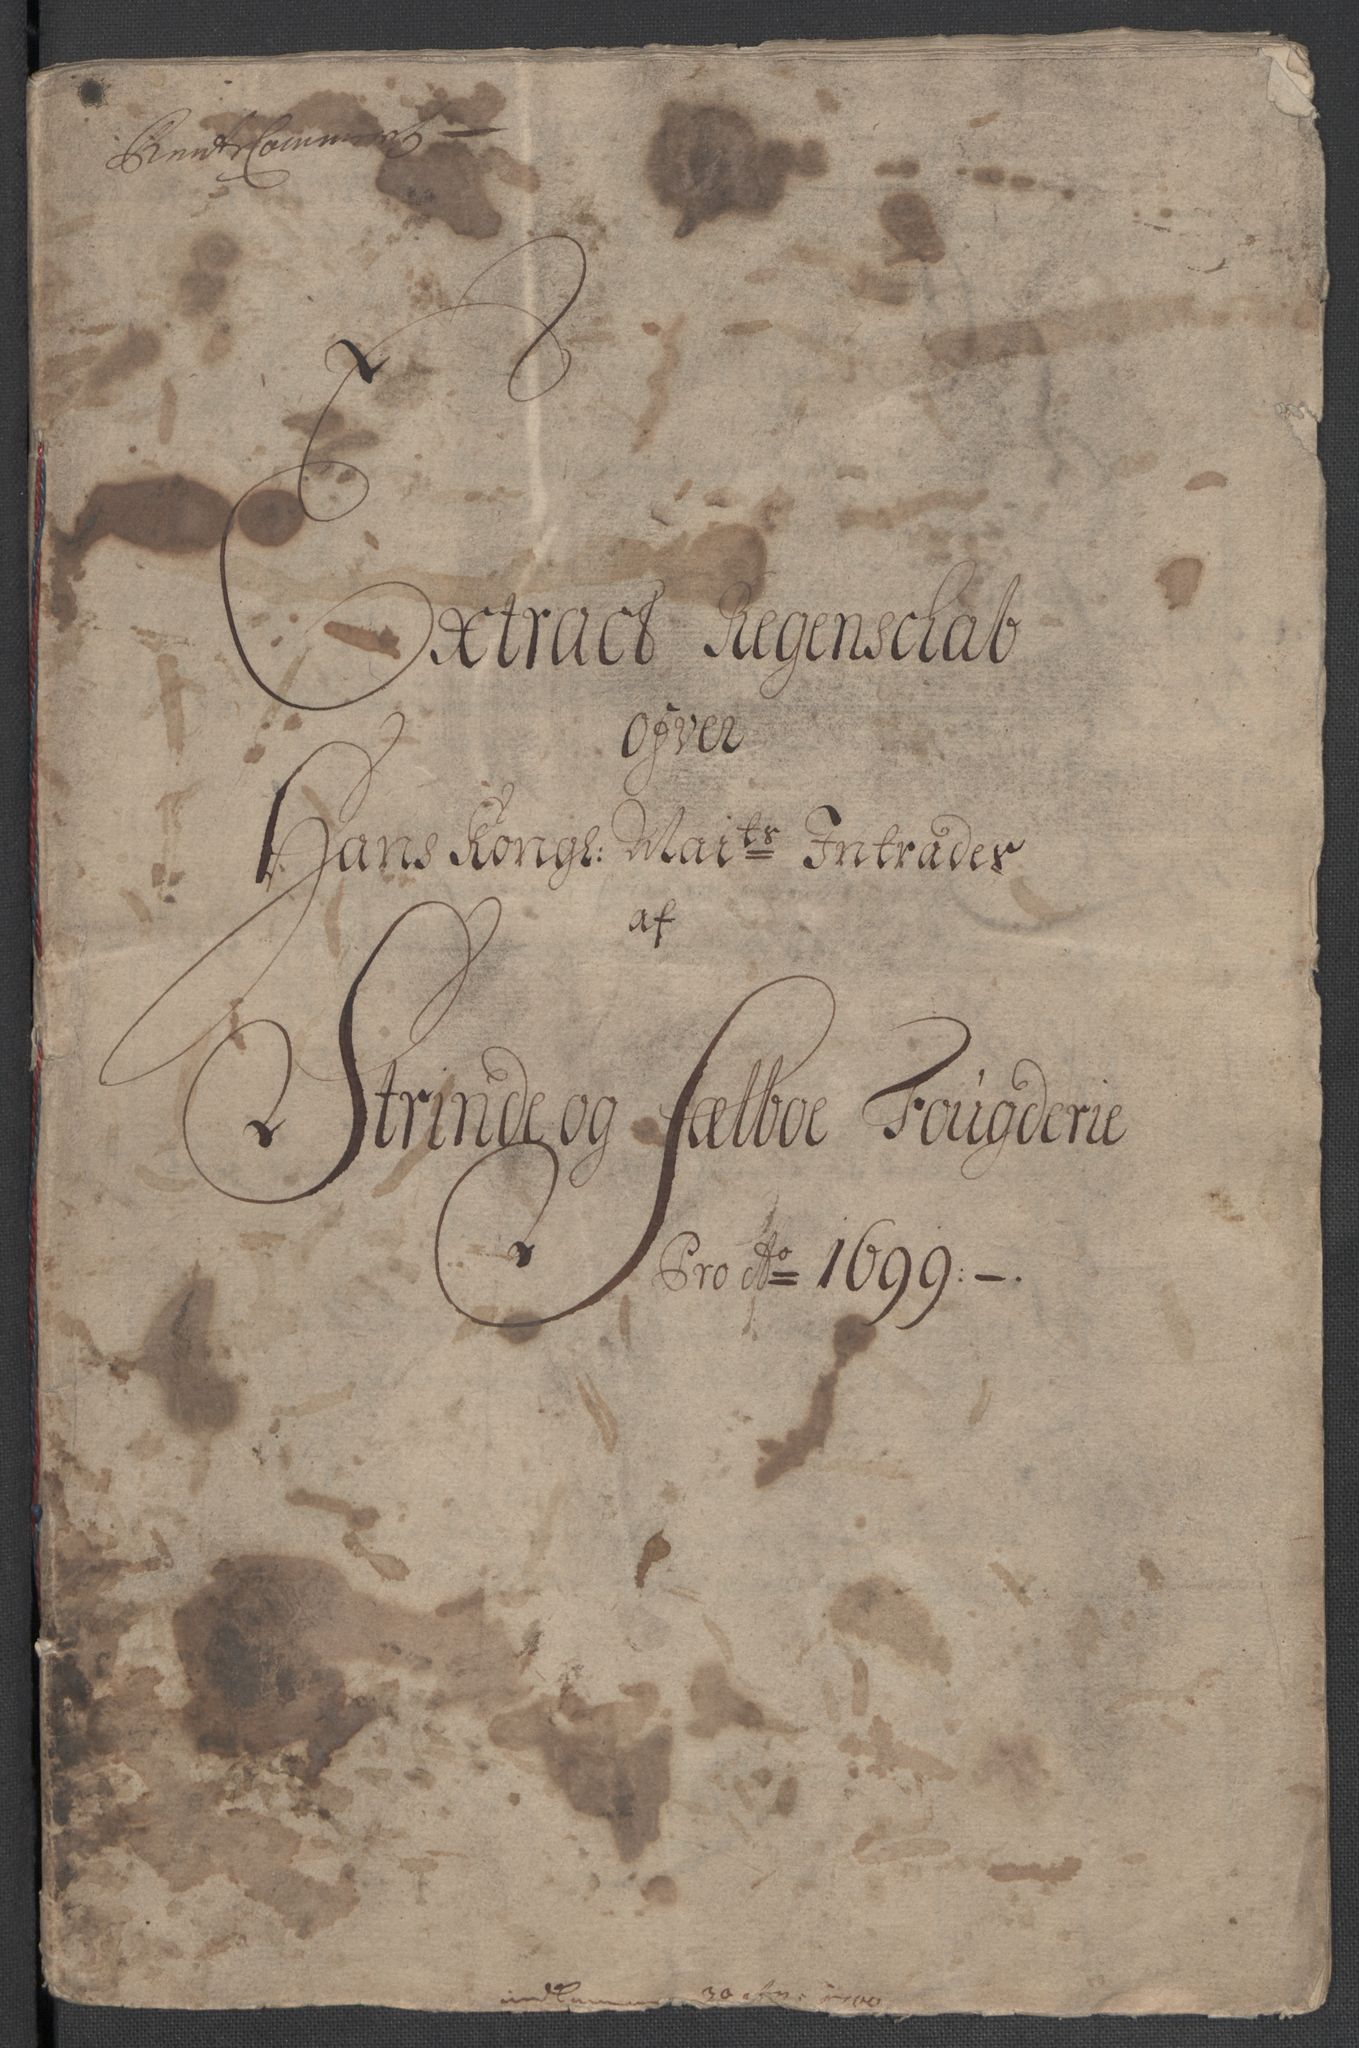 Rente Cammer
Extract Regenschab
ofver
Hans Kongl: Maits Intrader
af
Strinde og Sælboe Fougderie
Pro Ao 1699:-.
indkommen 30 1700